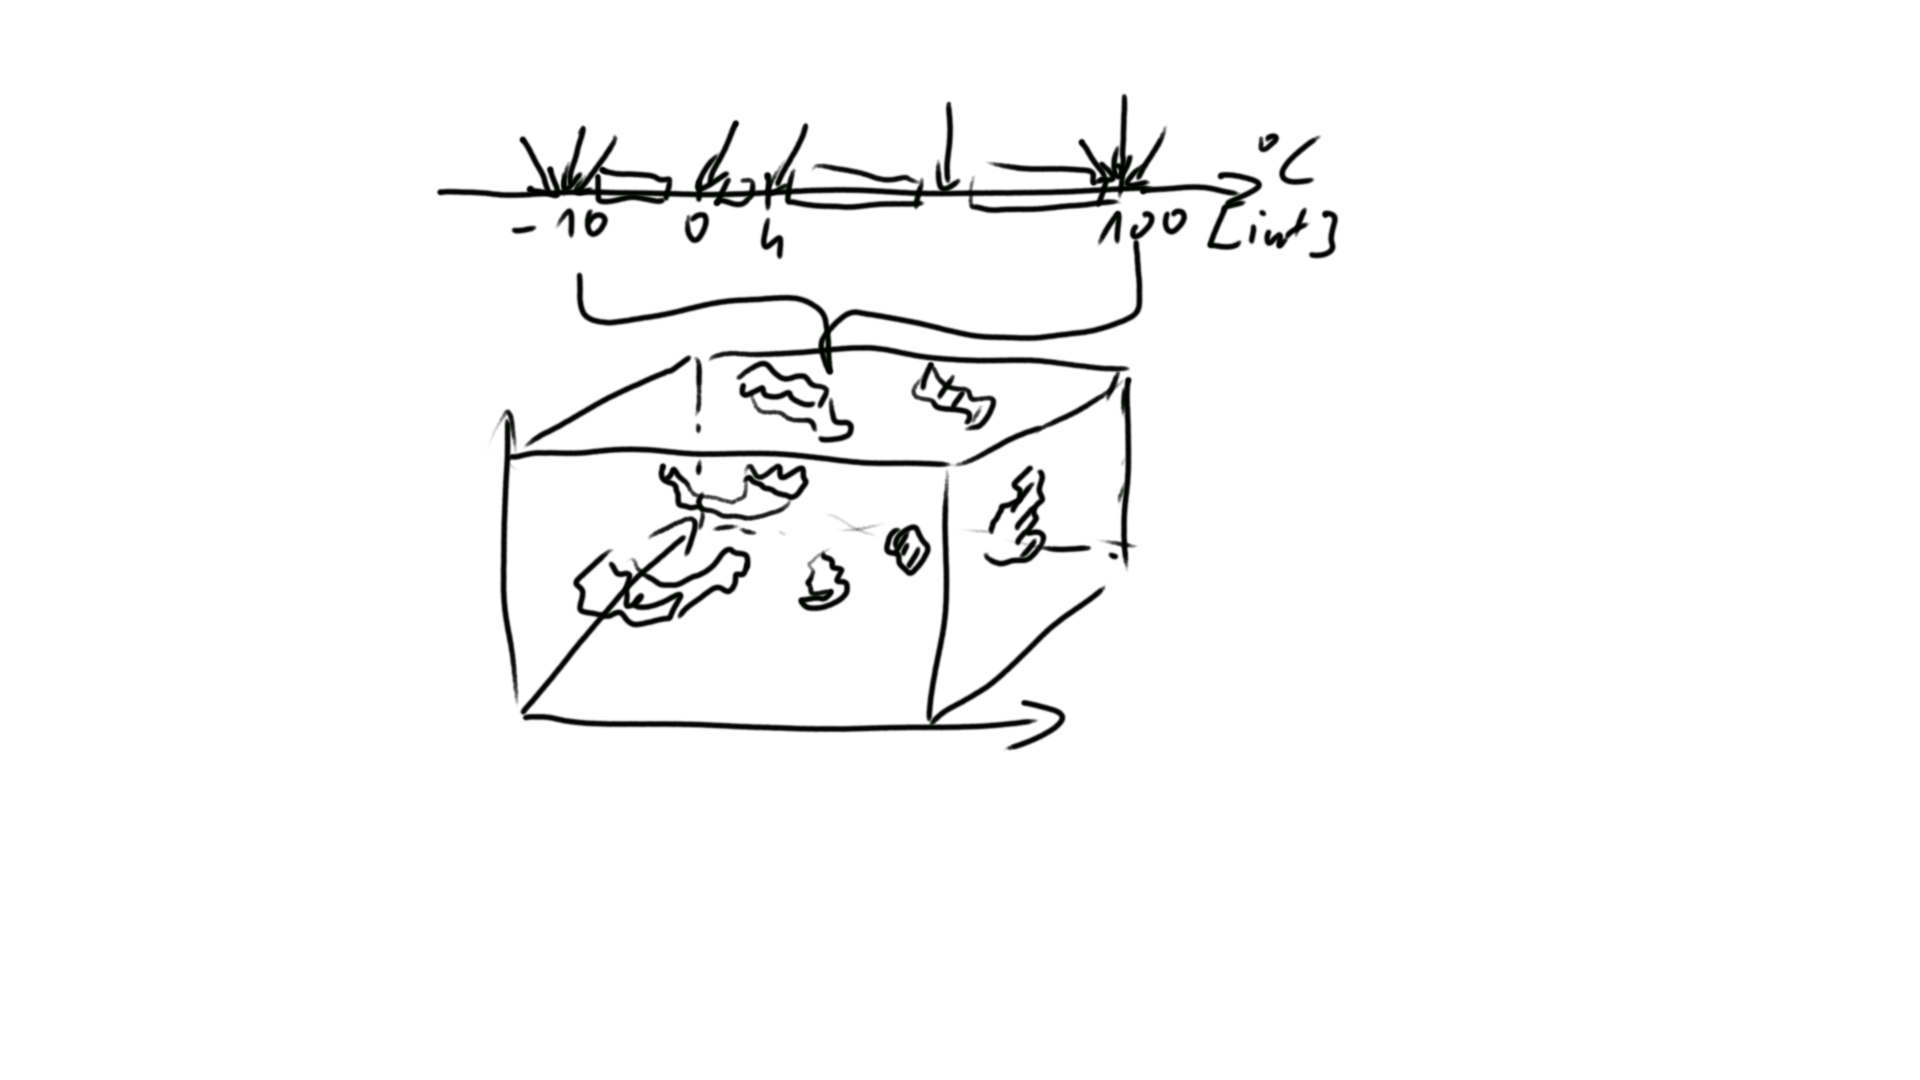 °C
-10 0 4 100 [int]